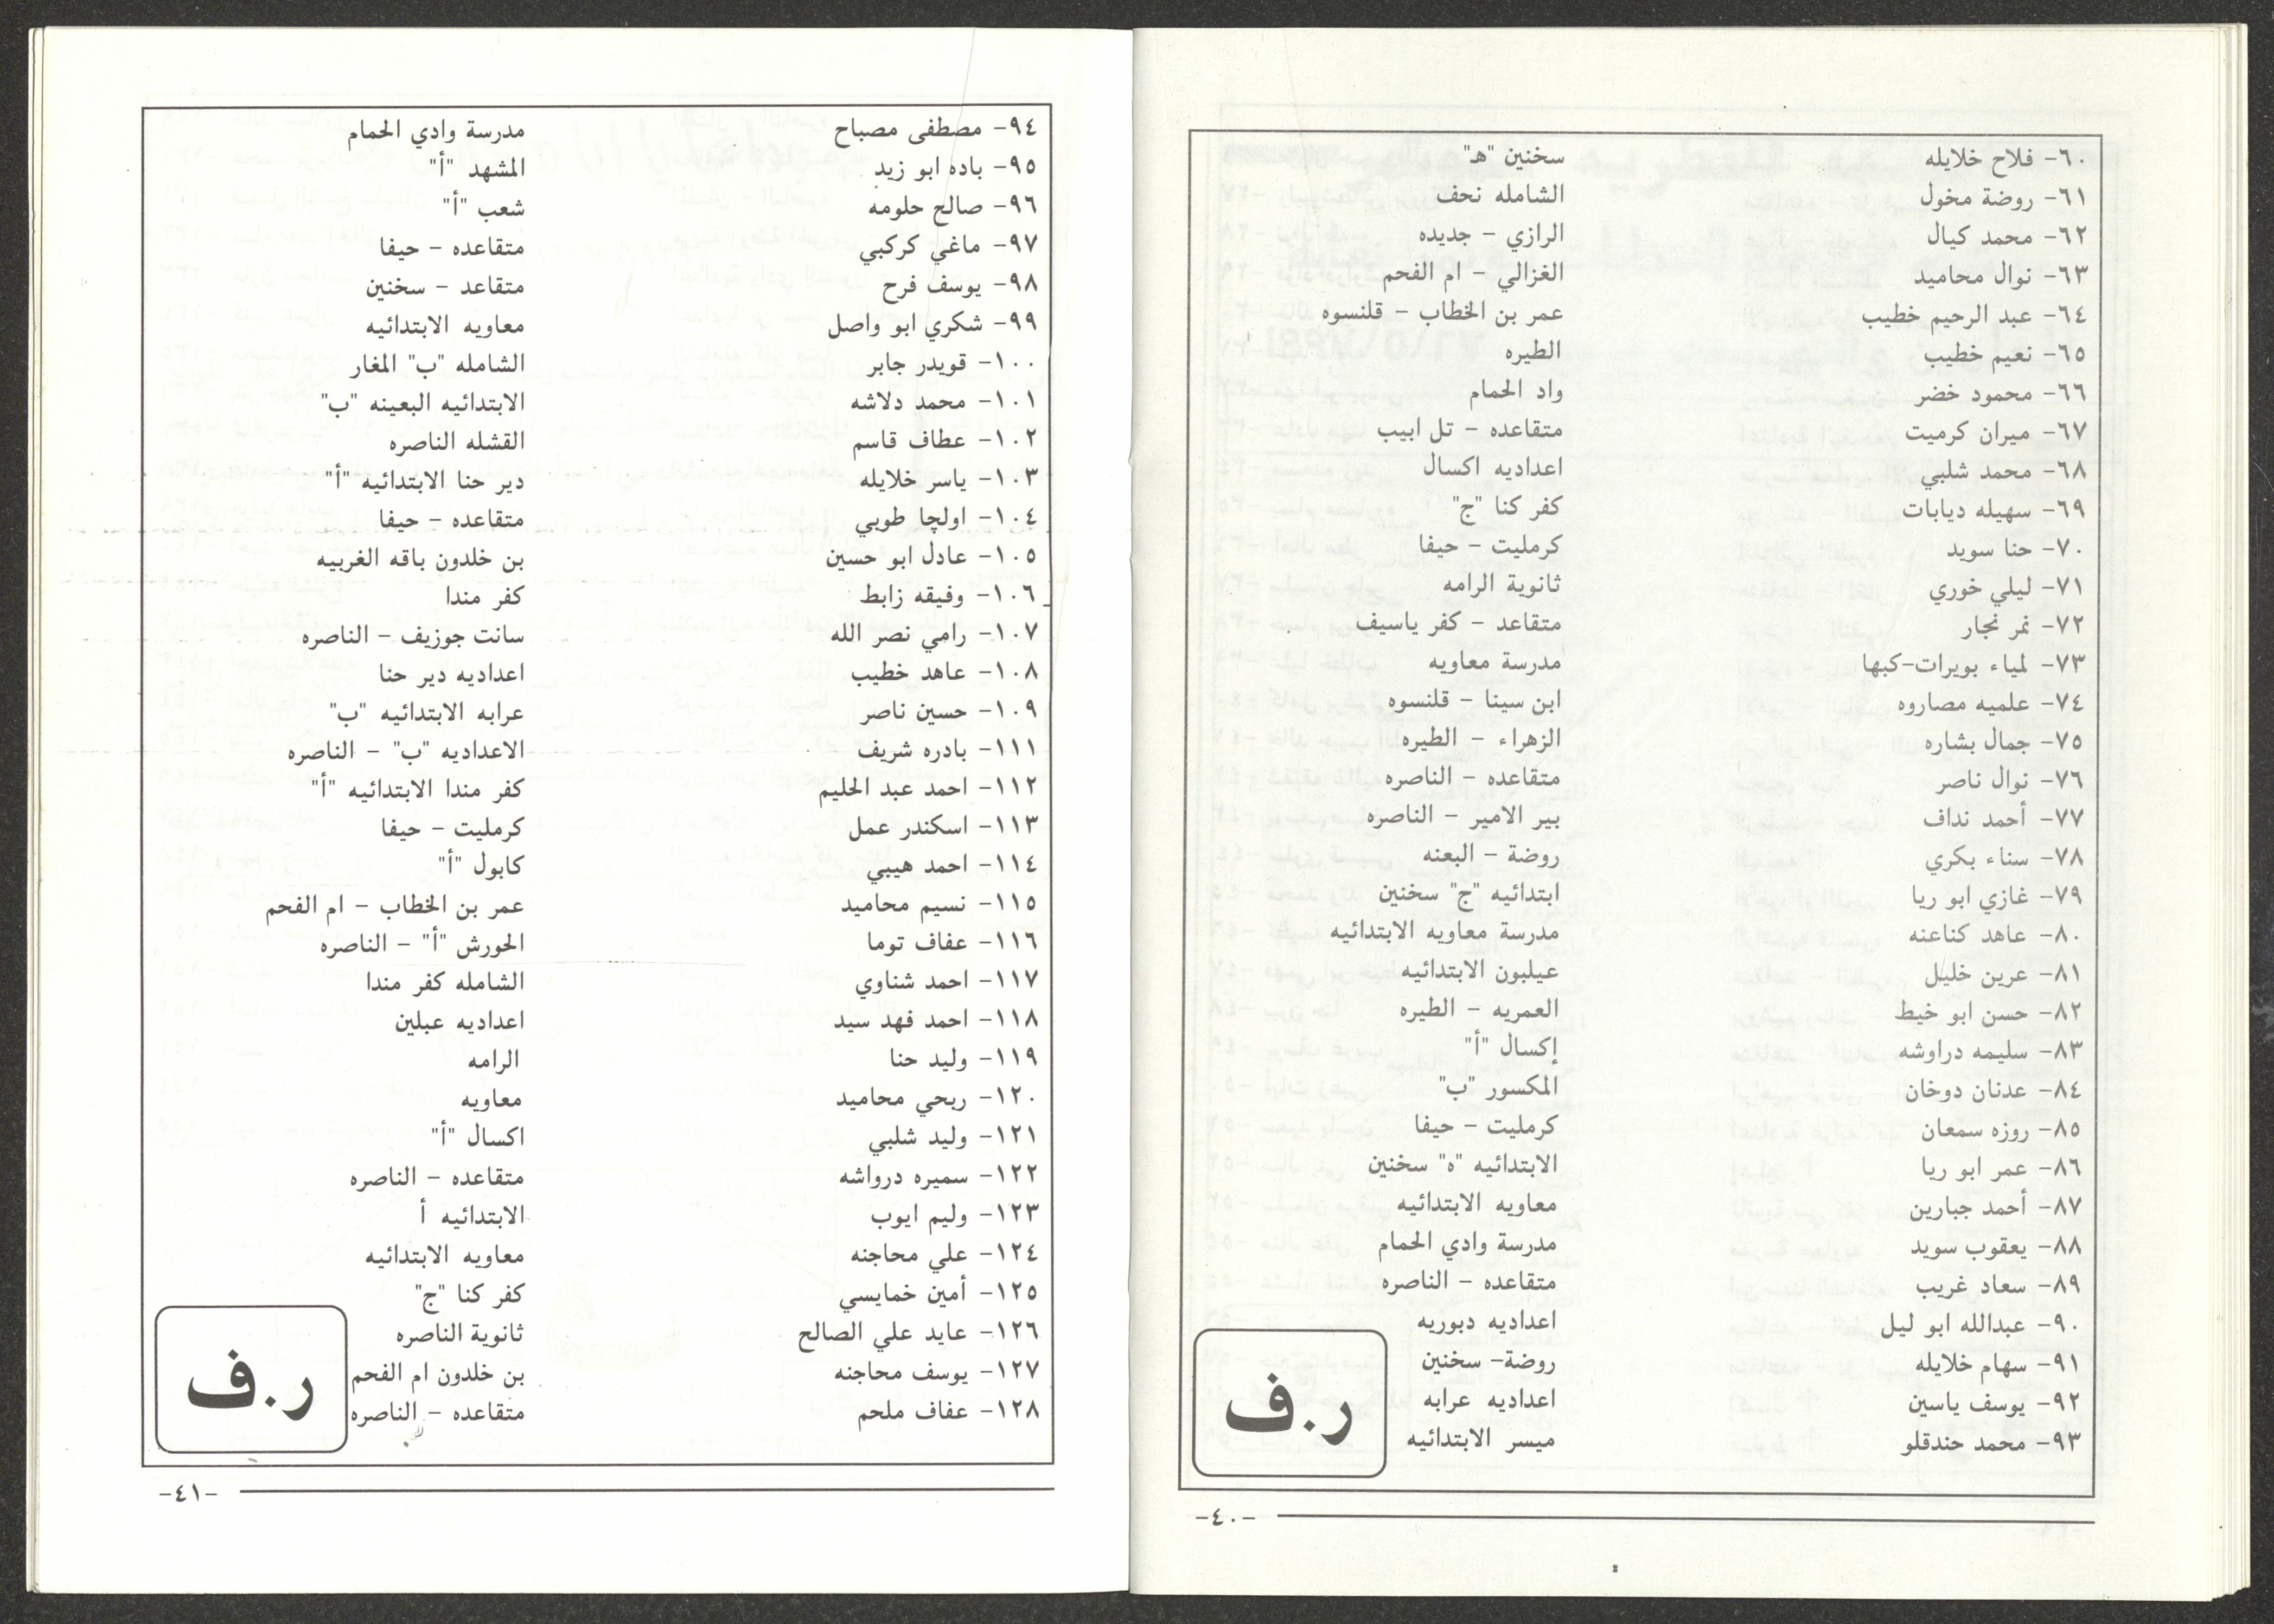 ٦٠- فلاح خلايله سخنين "هـ"
٦١- روضة مخول الشامله نحف
٦٢- محمد كيال الرازي - جديده
٦٣- نوال محاميد الغزالي - ام الفحم
٦٤- عبد الرحيم خطيب عمر بن الخطاب - قلنسوه
٦٥- نعيم خطيب الطيره
٦٦- محمود خضر واد الحمام
٦٧- ميران كرميت متقاعده - تل ابيب
٦٨- محمد شلبي اعداديه اكسال
٦٩- سهيله ديابات كفر كنا "ج"
٧٠- حنا سويد كرمليت - حيفا
٧١- ليلي خوري ثانوية الرامه
٧٢- نمر نجار متقاعد - كفر ياسيف
٧٣- لمياء بويرات-كبها مدرسة معاويه
٧٤- علميه مصاروه ابن سينا - قلنسوه
٧٥- جمال بشاره الزهراء - الطيره
٧٦- نوال ناصر متقاعده - الناصره
٧٧- أحمد نداف بير الامير - الناصره
٧٨- سناء بكري روضة - البعنه
٧٩- غازي ابو ريا ابتدائيه "ج" سخنين
٨٠- عاهد كناعنه مدرسة معاويه الابتدائيه
٨١- عرين خليل عيلبون الابتدائيه
٨٢- حسن ابو خيط العمريه - الطيره
٨٣- سليمه دراوشه إكسال "أ"
٨٤- عدنان دوخان المكسور "ب"
٨٥- روزه سمعان كرمليت - حيفا
٨٦- عمر ابو ريا الابتدائيه "ه" سخنين
٨٧- أحمد جبارين معاويه الابتدائيه
٨٨- يعقوب سويد مدرسة وادي الحمام
٨٩- سعاد غريب متقاعده - الناصره
٩٠- عبدالله ابو ليل اعداديه دبوريه
٩١- سهام خلايله روضة- سخنين
٩٢- يوسف ياسين اعداديه عرابه
٩٣- محمد حندقلو ميسر الابتدائيه
ر.ف
-٤٠-
٩٤- مصطفى مصباح مدرسة وادي الحمام
٩٥- باده ابو زيد المشهد "أ"
٩٦- صالح حلومه شعب "أ"
٩٧- ماغي كركبي متقاعده - حيفا
٩٨- يوسف فرح متقاعد - سخنين
٩٩- شكري ابو واصل معاويه الابتدائيه
١٠٠- قويدر جابر الشامله "ب" المغار
١٠١- محمد دلاشه الابتدائيه البعينه "ب"
١٠٢- عطاف قاسم القشله الناصره
١٠٣- ياسر خلايله دير حنا الابتدائيه "أ"
١٠٤- اولچا طوبي متقاعده - حيفا
١٠٥- عادل ابو حسين بن خلدون باقه الغربيه
١٠٦- وفيقه زابط كفر مندا
١٠٧- رامي نصر الله سانت جوزيف - الناصره
١٠٨- عاهد خطيب اعداديه دير حنا
١٠٩- حسين ناصر عرابه الابتدائيه "ب"
١١١- بادره شريف الاعداديه "ب" - الناصره
١١٢- احمد عبد الحليم كفر مندا الابتدائيه "أ"
١١٣- اسكندر عمل كرمليت - حيفا
١١٤- احمد هيبي كابول "أ"
١١٥- نسيم محاميد عمر بن الخطاب - ام الفحم
١١٦- عفاف توما الحورش "أ" - الناصره
١١٧- احمد شناوي الشامله كفر مندا
١١٨- احمد فهد سيد اعداديه عبلين
١١٩- وليد حنا الرامه
١٢٠- ربحي محاميد معاويه
١٢١- وليد شلبي اكسال "أ"
١٢٢- سميره درواشه متقاعده - الناصره
١٢٣- وليم ايوب الابتدائيه أ
١٢٤- علي محاجنه معاويه الابتدائيه
١٢٥- أمين خمايسي كفر كنا "ج"
١٢٦- عايد علي الصالح ثانوية الناصره
١٢٧- يوسف محاجنه بن خلدون ام الفحم
١٢٨- عفاف ملحم متقاعده - الناصره
ر.ف
-٤١-